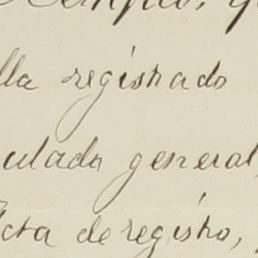 lla registrado
culada general,
Acta de registro,